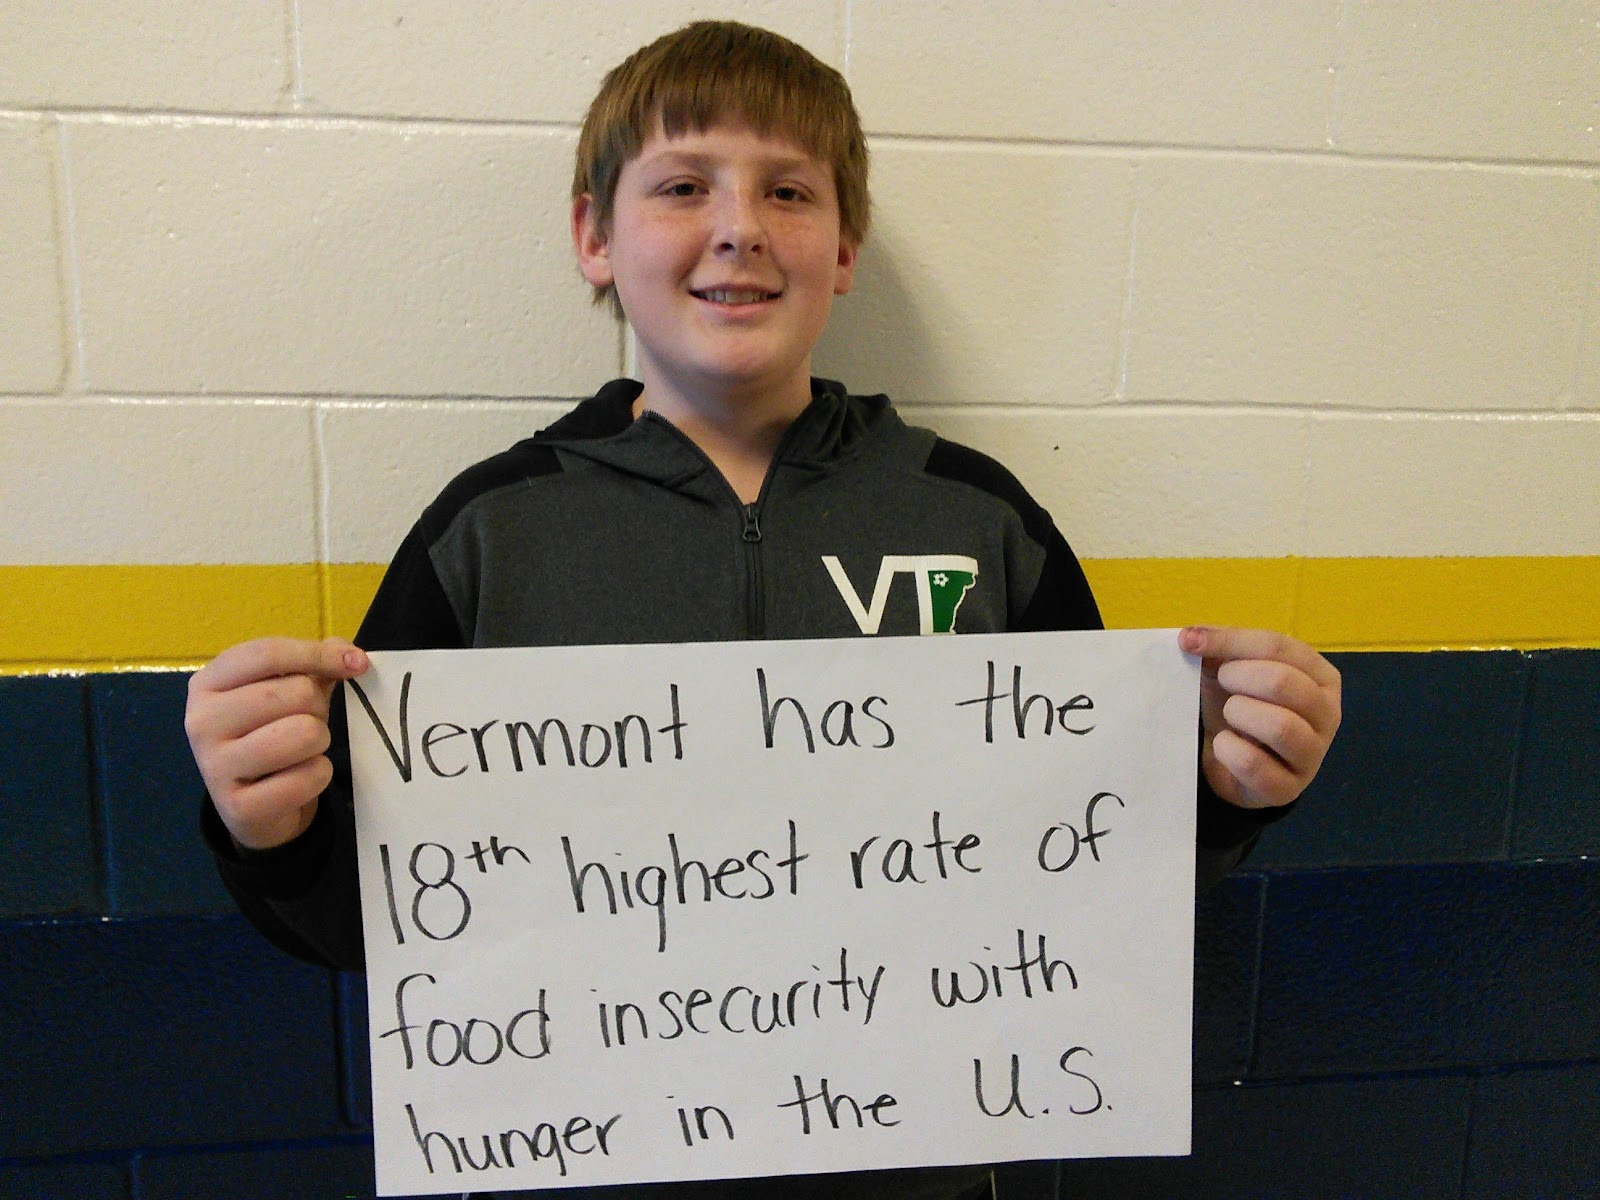 VT
Vermont has the
18th highest rate of
food insecurity with
hunger in the U.S.